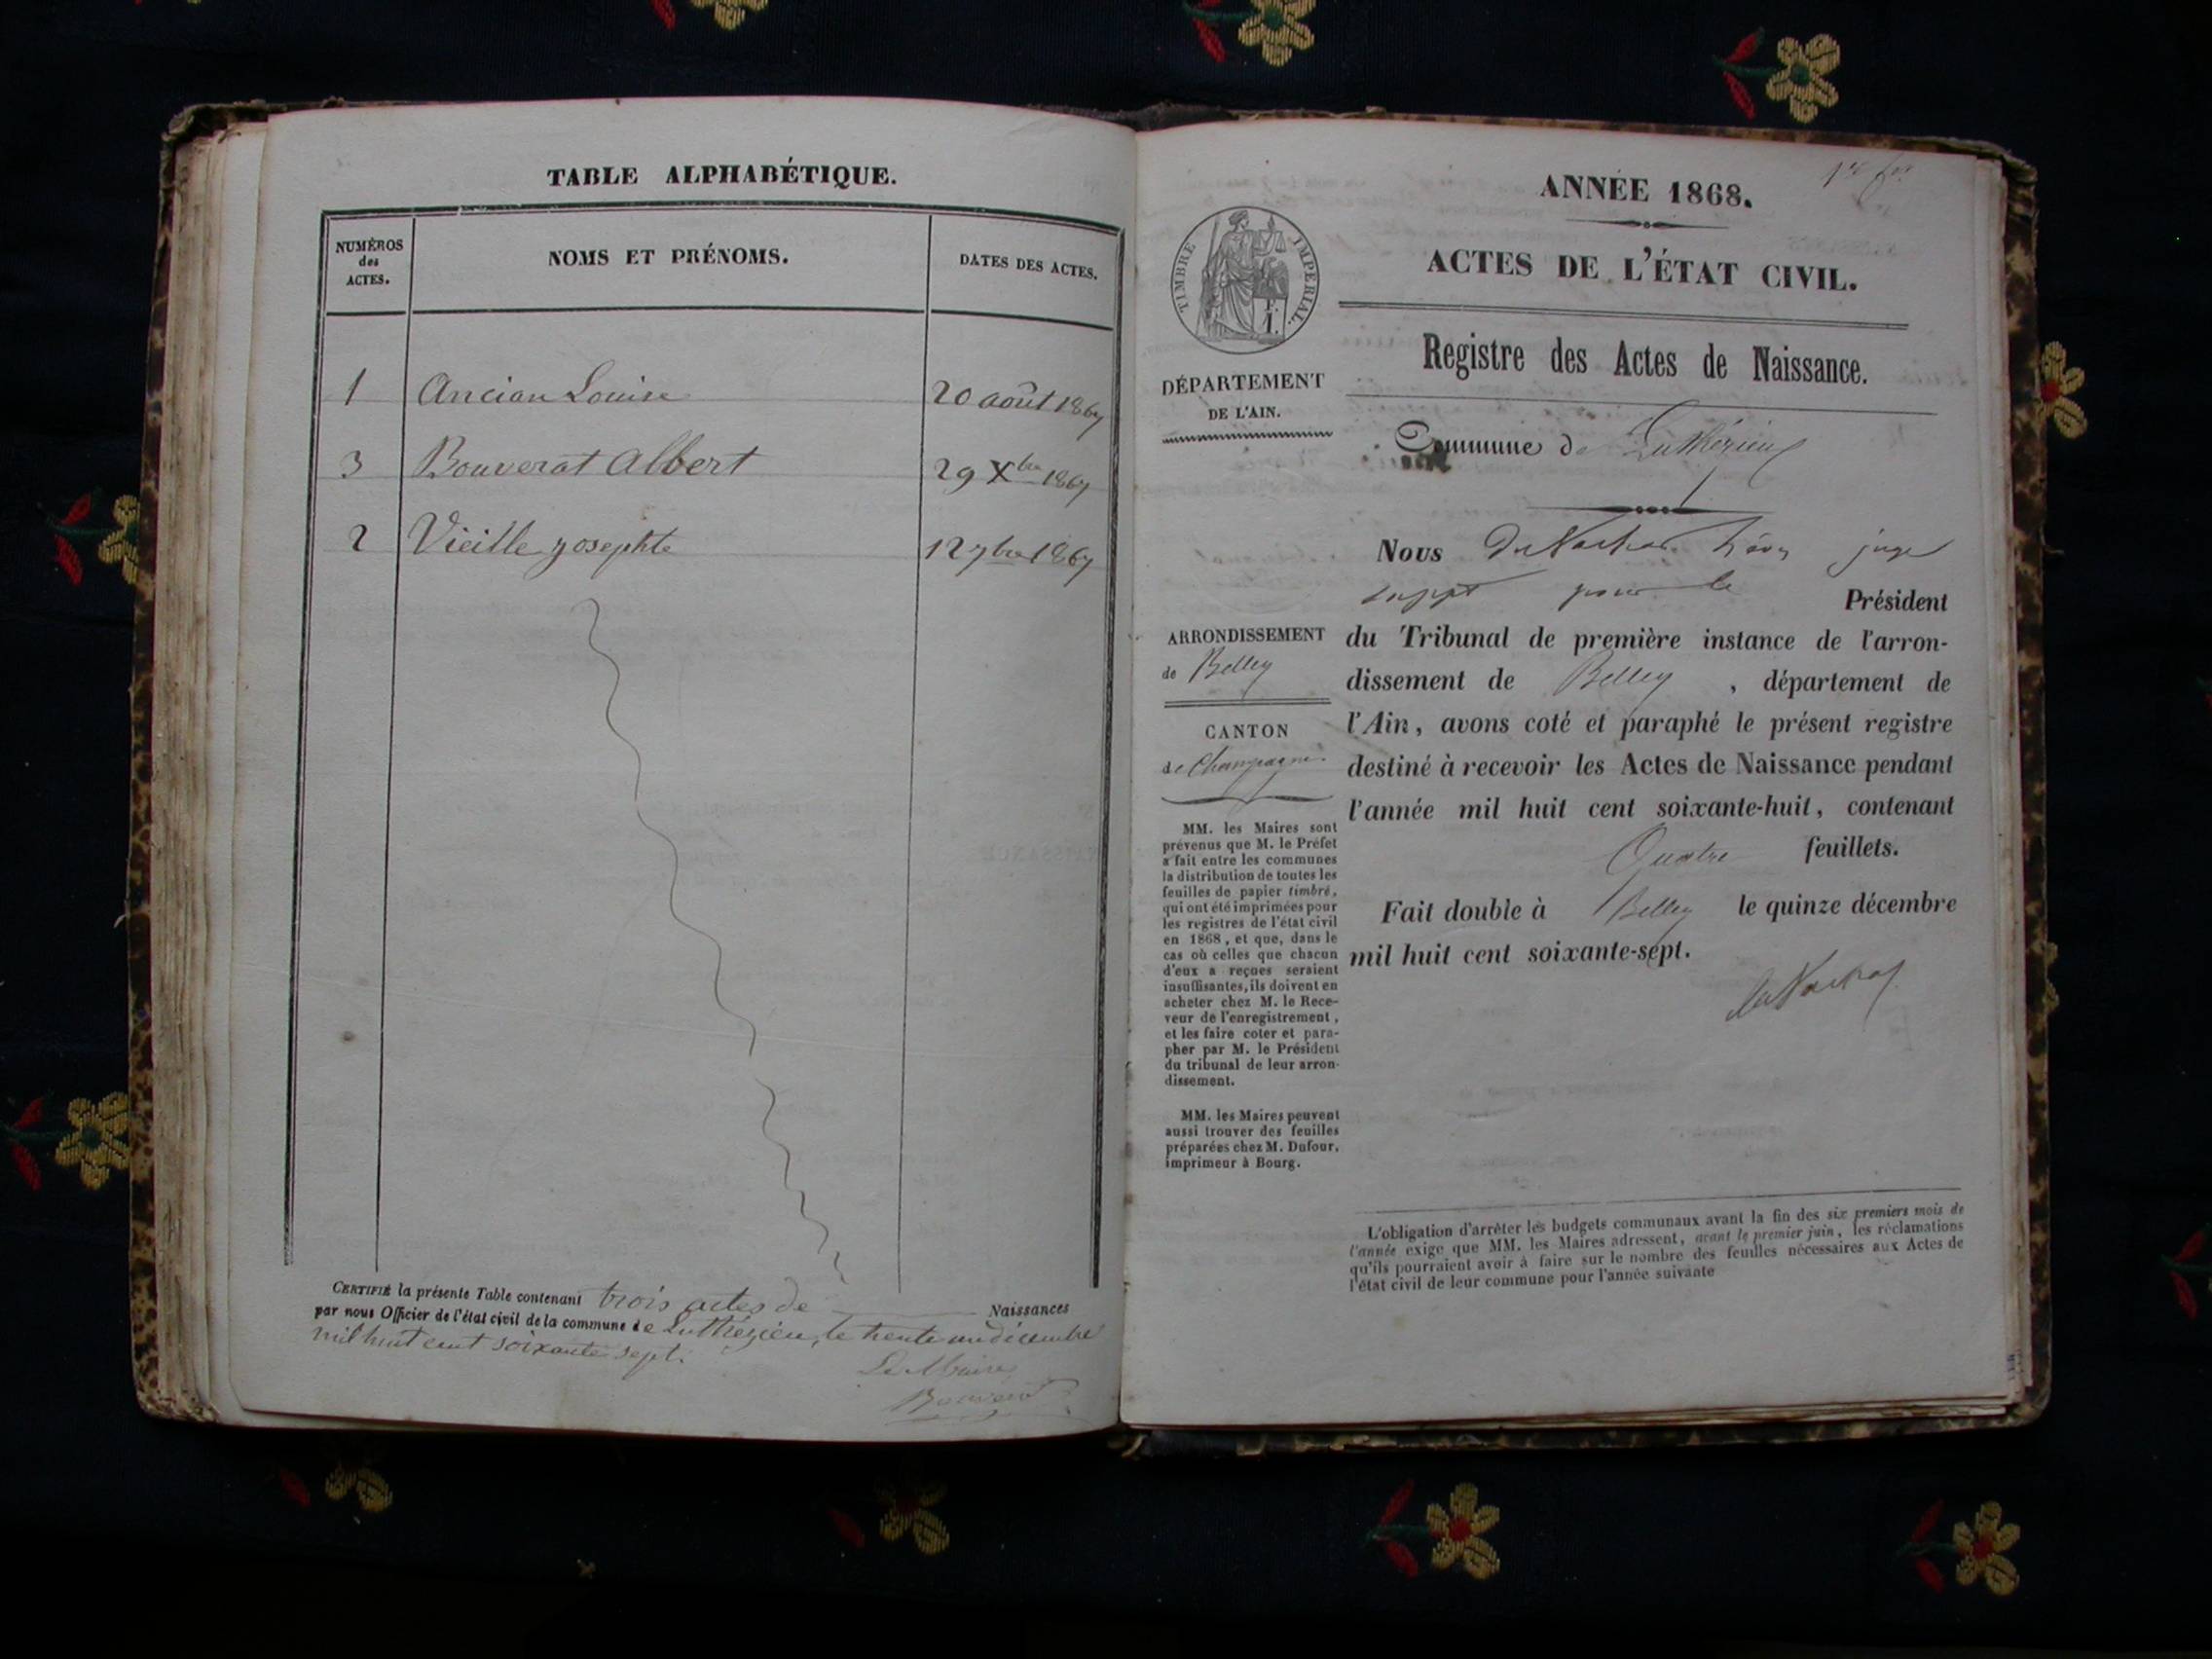 TABLE ALPHABÉTIQUE.
NUMÉROS
des
ACTES.
NOMS ET PRÉNOMS.
DATES DES ACTES.
1 Ancian Louise 20 août 1867
3 Bouverat Albert 29 Xbre 1867
2 Vieille Josephte 12 7bre 1867
CERTIFIÉ la présente Table contenant trois actes de Naissances
par nous Officier de l'état civil de la commune de Luthézieu, le trente un décembre
mil huit cent soixante sept.
Le Maire
Bouverat
ANNÉE 1868.
ACTES DE L'ÉTAT CIVIL.
TIMBRE IMPERIAL.
Registre des Actes de Naissance.
DÉPARTEMENT
DE L'AIN.
Commune de Luthézieu
Nous juge
suppt pour le Président
du Tribunal de première instance de l'arron-
dissement de Belley, département de
l'Ain, avons coté et paraphé le présent registre
destiné à recevoir les Actes de Naissance pendant
l'année mil huit cent soixante-huit, contenant
Quatre feuillets.
Fait double à Belley le quinze décembre
mil huit cent soixante-sept.
ARRONDISSEMENT
de Belley
CANTON
de Champagne.
MM. les Maires sont
prévenus que M. le Préfet
a fait entre les communes
la distribution de toutes les
feuilles de papier timbré,
qui ont été imprimées pour
les registres de l'état civil
en 1868, et que, dans le
cas où celles que chacun
d'eux a reçues seraient
insuffisantes, ils doivent en
acheter chez M. le Rece-
veur de l'enregistrement,
et les faire coter et para-
pher par M. le Président
du tribunal de leur arron-
dissement.
MM. les Maires peuvent
aussi trouver des feuilles
préparées chez M. Dufour,
imprimeur à Bourg.
L'obligation d'arrêter les budgets communaux avant la fin des six premiers mois de
l'année exige que MM. les Maires adressent, avant le premier juin, les réclamations
qu'ils pourraient avoir à faire sur le nombre des feuilles nécessaires aux Actes de
l'état civil de leur commune pour l'année suivante